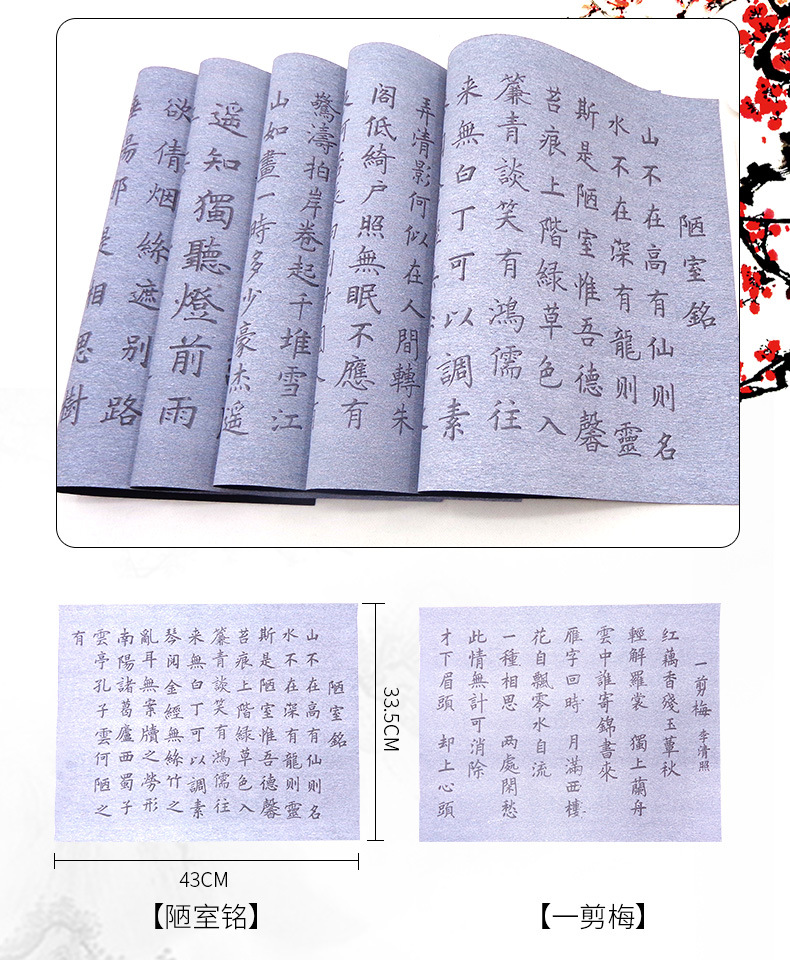 陋室銘
山不在高有仙則名
水不在深有龍則靈
斯是陋室惟吾德馨
苔痕上階緑草色入
簾青談笑有鴻儒往
来無白丁可以調素
弄清影何似在人間轉朱
阁低綺户照無眠不應有
驚濤拍岸卷起千堆雪江
山如畫一時多少豪杰遥
遥知獨聽燈前雨
欲倩烟絲遮别路
垂楊那是相思樹
陋室銘
山不在高有仙則名
水不在深有龍則靈
斯是陋室惟吾德馨
苔痕上階緑草色入
簾青談笑有鴻儒往
来無白丁可以調素
琴阅金經無絲竹之
亂耳無案牘之勞形
南陽諸葛廬西蜀子
雲亭孔子雲何陋之
有
33.5CM
43CM
【陋室铭】
一剪梅 李清照
紅藕香殘玉簟秋
輕解羅裳 獨上蘭舟
雲中誰寄錦書來
雁字回時 月滿西樓
花自飄零水自流
一種相思 两處閑愁
此情無計可消除
才下眉頭 却上心頭
【一剪梅】